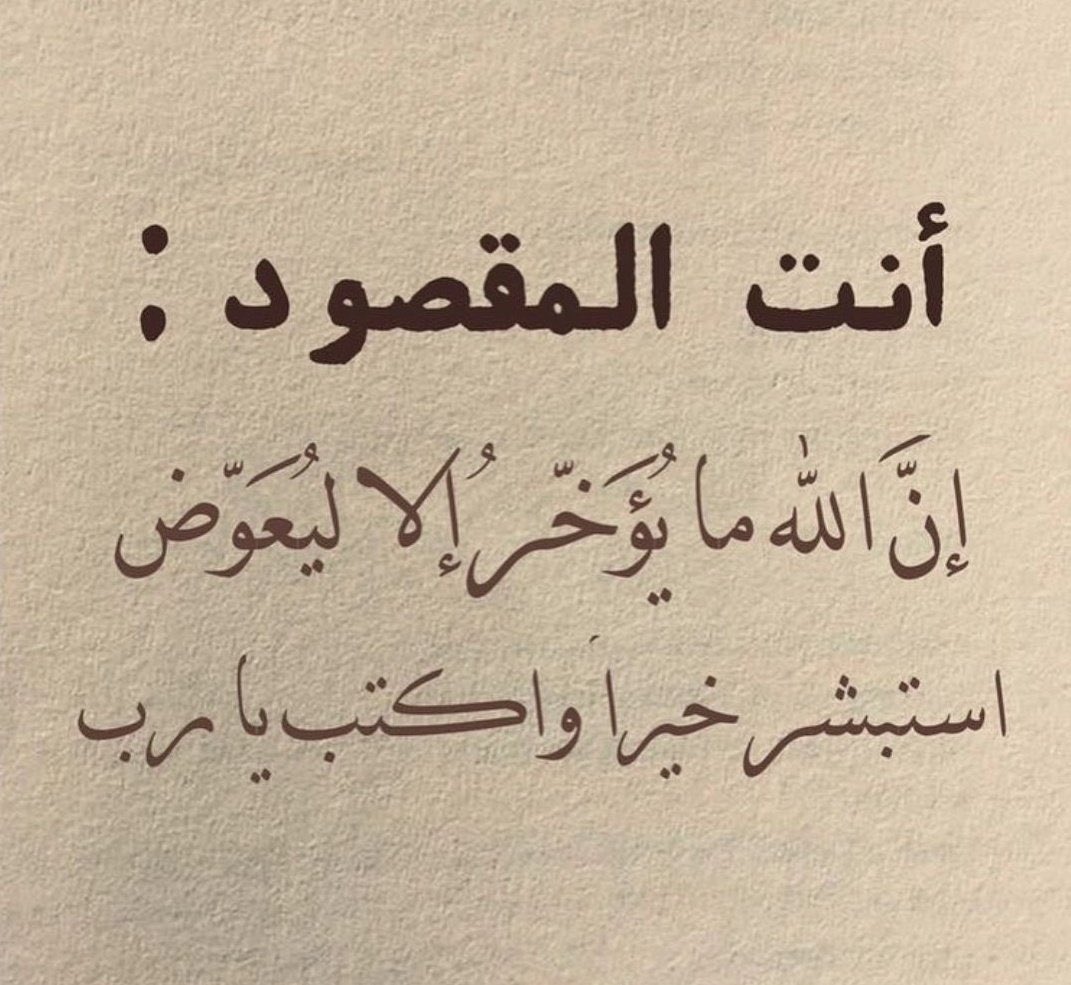 أنت المقصود :
إنَّ اللّٰه ما يُؤَخّر ُإلا ليُعَوّض
استبشر خيراً واكتب يا رب